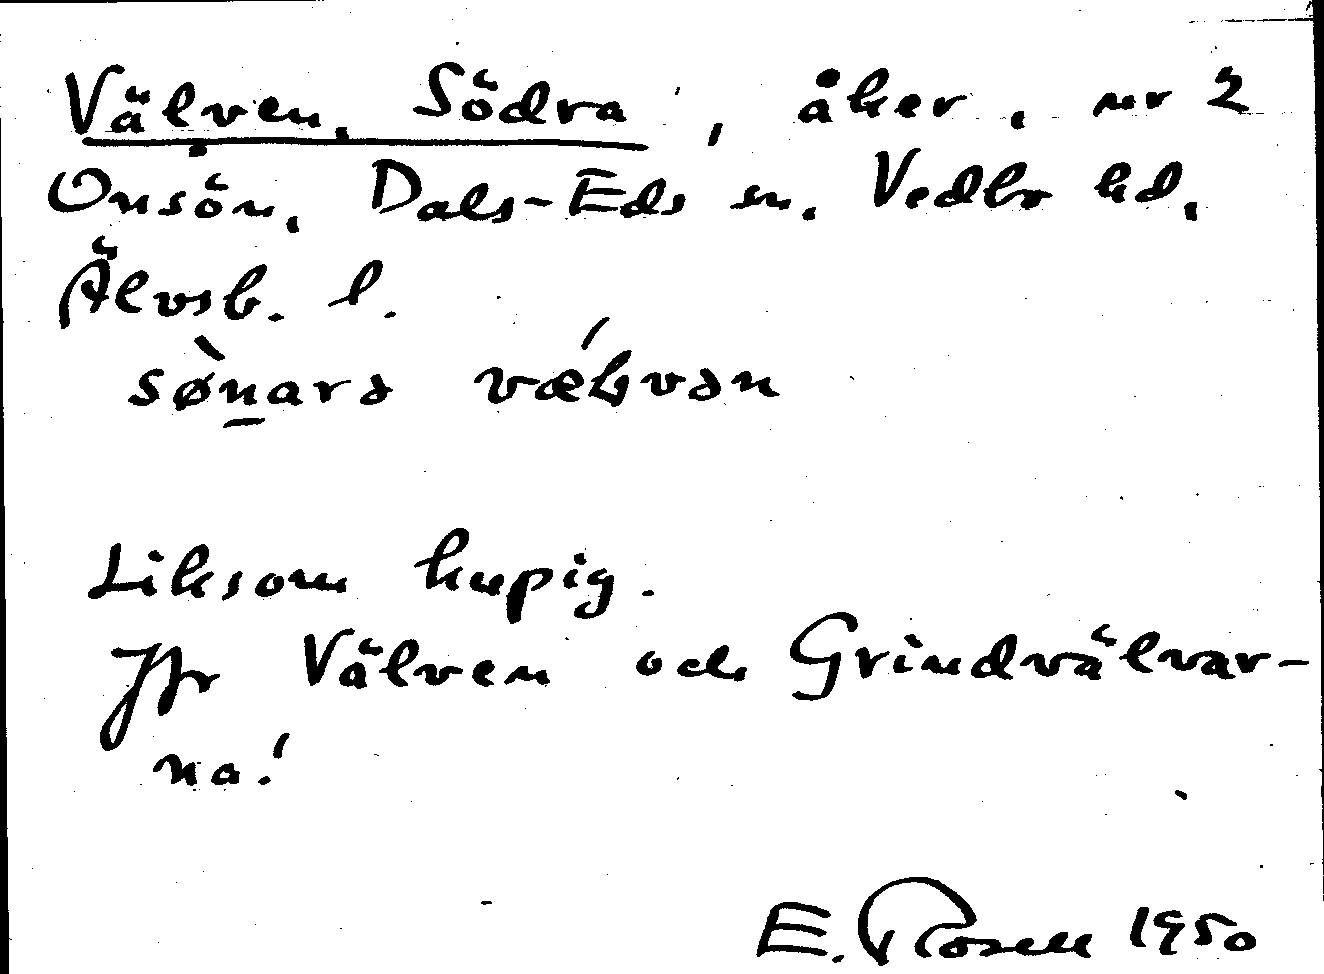 Välven, Södra, åker, nr 2
Onsön, Dals-Eds sn. Vedbo hd,
Älvsb. l.
sø̀n̲arə vǽɫvən
Liksom kupig.
Jfr Välven och Grindvälvar-
na!
E. Rosell 1950